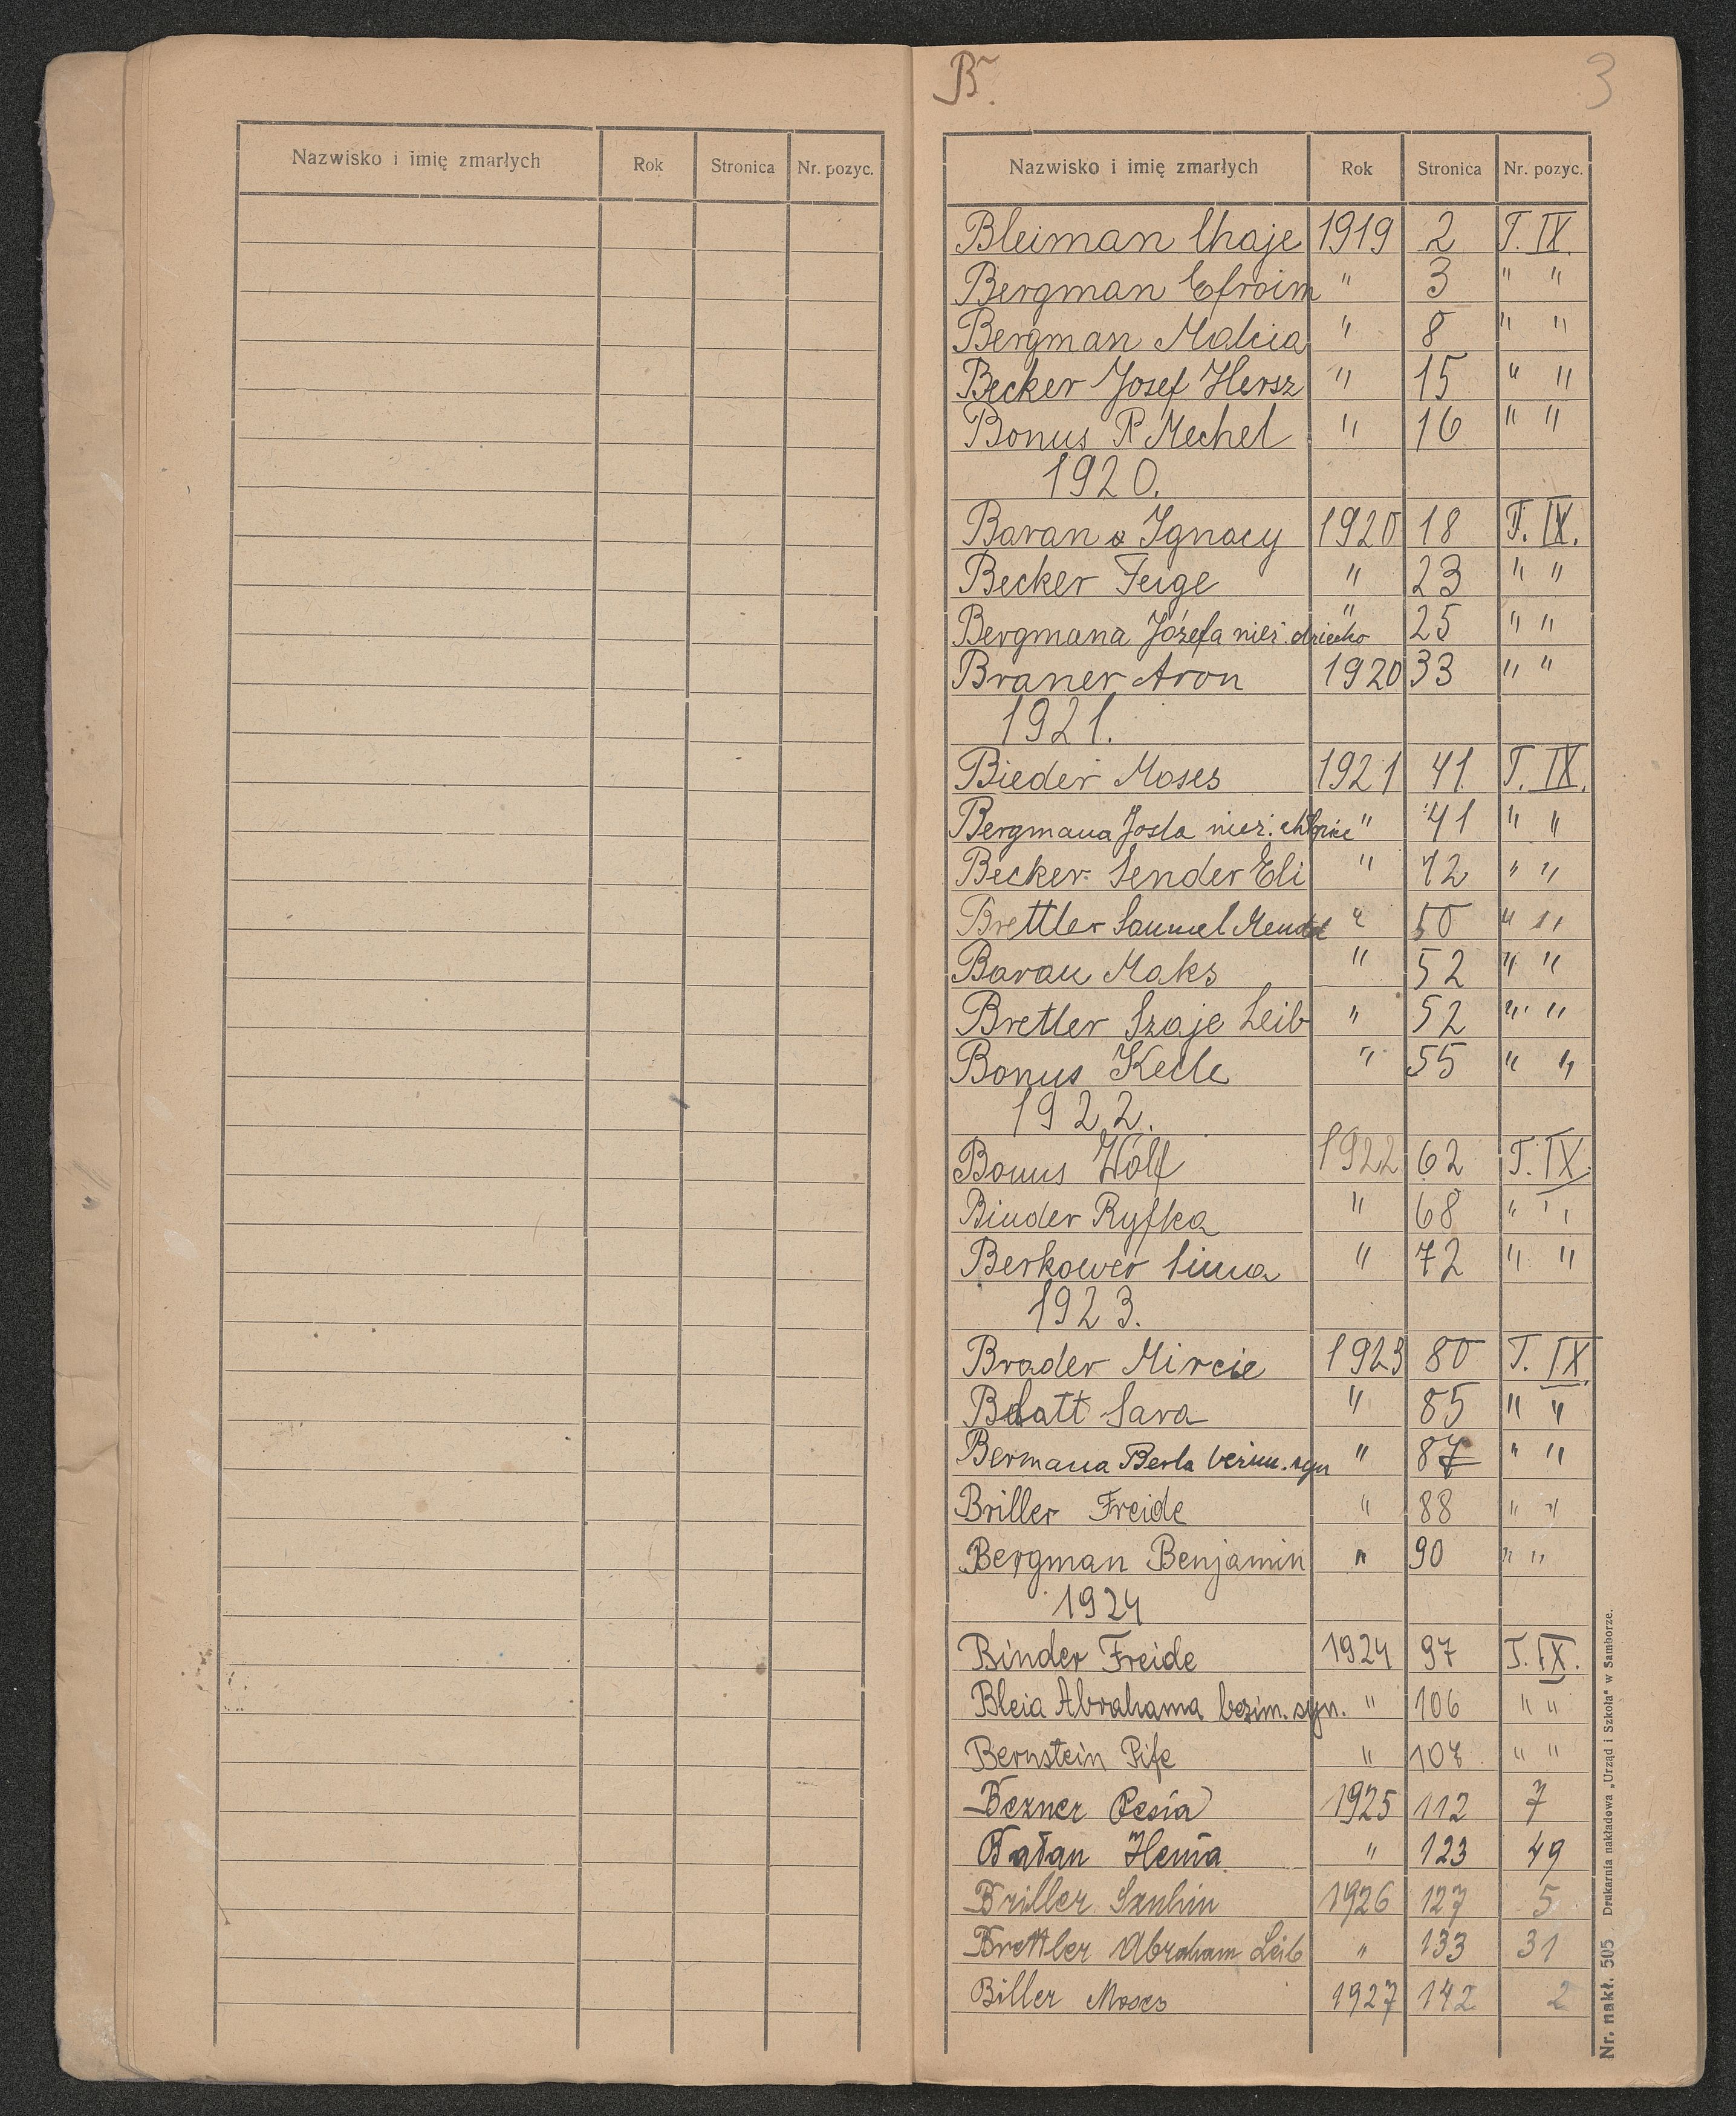 B.
3
Nazwisko i imię zmarłych Rok Stronica Nr. pozyc.
Nazwisko i imię zmarłych Rok Stronica Nr. pozyc.
Bleiman Chaje 1919 2 T. IX.
Bergman Efroim " 3 " "
Bergman Malcia " 8 " "
Becker Josef Hersz " 15 " "
Bonus R Mechel " 16 " "
1920.
Baran Ignacy 1920 18 T. IX.
Becker Feige " 23 " "
Bergmana Józefa nież. dziecko " 25 " "
Braner Aron 1920 33 " "
1921.
Bieder Moses 1921 41 T. IX.
Bergmana Josla nież. chłopiec " 41 " "
Becker Sender Eli " 42 " "
Brettler Samuel Mendel " 50 " "
Baran Maks " 52 " "
Bretler Szaje Leib " 52 " "
Bonus " 55 " "
1922.
Bonus Wolf 1922 62 T. IX.
Binder Ryfka " 68 " "
Berkower Sima " 72 " "
1923.
Brader Mircie 1923 80 T. IX.
Blatt Sara " 85 " "
Bermana Berla bezim. syn " 87 " "
Briller Freide " 88 " "
Bergman Benjamin " 90 " "
1924
Binder Freide 1924 97 T. IX.
Bleia Abrahama bezim. syn. " 106 " "
Bernstein Pife " 107 " "
Bezner Pesia 1925 112 7
Bałan Henia " 123 49
Briller 1926 127 5
Brettler Abraham Leib " 133 31
Biller Moses 1927 142 2
Nr. nakł. 505 Drukarnia nakładowa „Urząd i Szkoła" w Samborze.